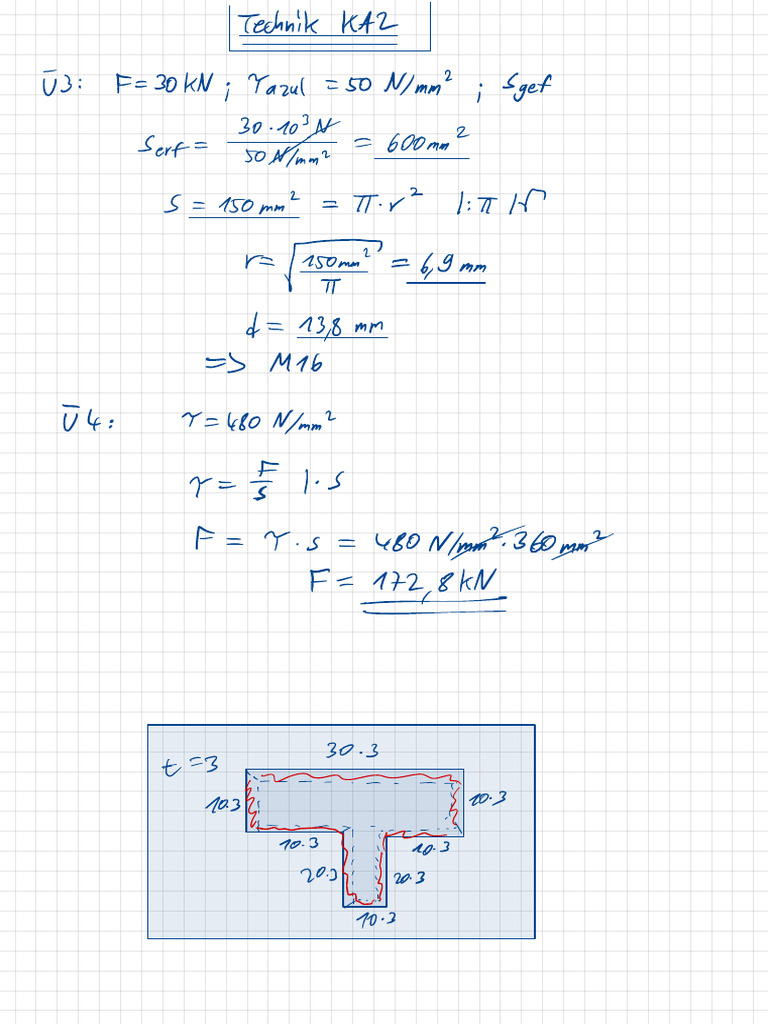 Technik KA2
Ü3: F = 30 KN ; τazul = 50 N/mm² ; Sgef
Serf = 30 · 10³ N / 50 N/mm² = 600 mm²
S = 150 mm² = π · r² |: π |√
r = √(150 mm² / π) = 6,9 mm
d = 13,8 mm
=> M16
Ü4: τ = 480 N/mm²
τ = F/S | · S
F = τ · s = 480 N/mm² · 360 mm²
F = 172,8 kN
30 · 3
t = 3
10.3 10.3
10.3 10.3
20.3 20.3
10.3